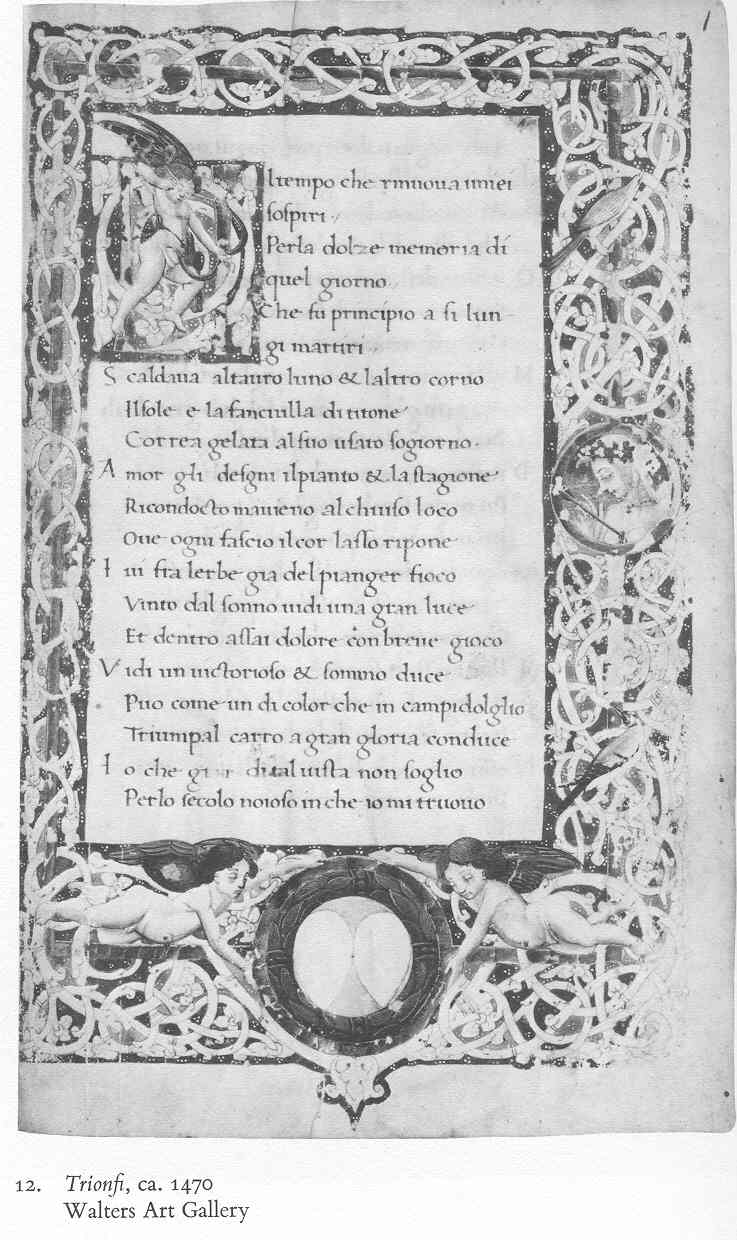 1
ltempo che rinuoua imiei
ſoſpiri
Perla dolze memoria di
quel giorno
Che fu principio a ſi lun-
gi martiri
S caldaua altauro luno & laltro corno
Ilſole e la fanciulla di titone
Correa gelata alſuo uſato ſogiorno.
A mor gli deſgni ilpianto & la ſtagione
Ricondocto mauieno al chiuſo loco
Oue ogni faſcio ilcor laſſo ripone
I ui fra lerbe gia del pianger fioco
Vinto dal ſonno uidi una gran luce
Et dentro aſſai dolore con breue gioco
V idi un uictorioſo & ſommo duce
Puo come un di color che in campidolglio
Triumpal carro a gran gloria conduce
I o che di tal uiſta non ſoglio
Perlo ſecolo noioſo in che io mi truouo
12. Trionfi, ca. 1470
Walters Art Gallery